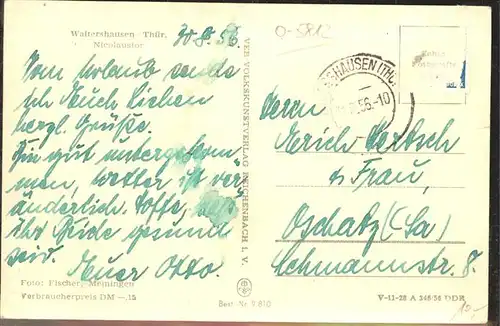 Waltershausen Thür.
Nicolaustor
30.8.56
Vom Urlaub sende
ich Euch Lieben
herzl. Grüße.
Bin gut untergekom-
men, Wetter ist ver-
änderlich. Hoffe, daß
Ihr Beide gesund
seid.
Euer Otto.
Foto: Fischer, Meiningen
Verbraucherpreis DM -.15
VEB VOLKSKUNSTVERLAG REICHENBACH I. V.
Best. Nr. 9 810
0-5812
SHAUSEN (THÜR
.56.-10
Herrn
Erich
u Frau,
Oschatz (Sa)
Lchmannstr. 8.
V-11-28 A 246/56 DDR
10,-